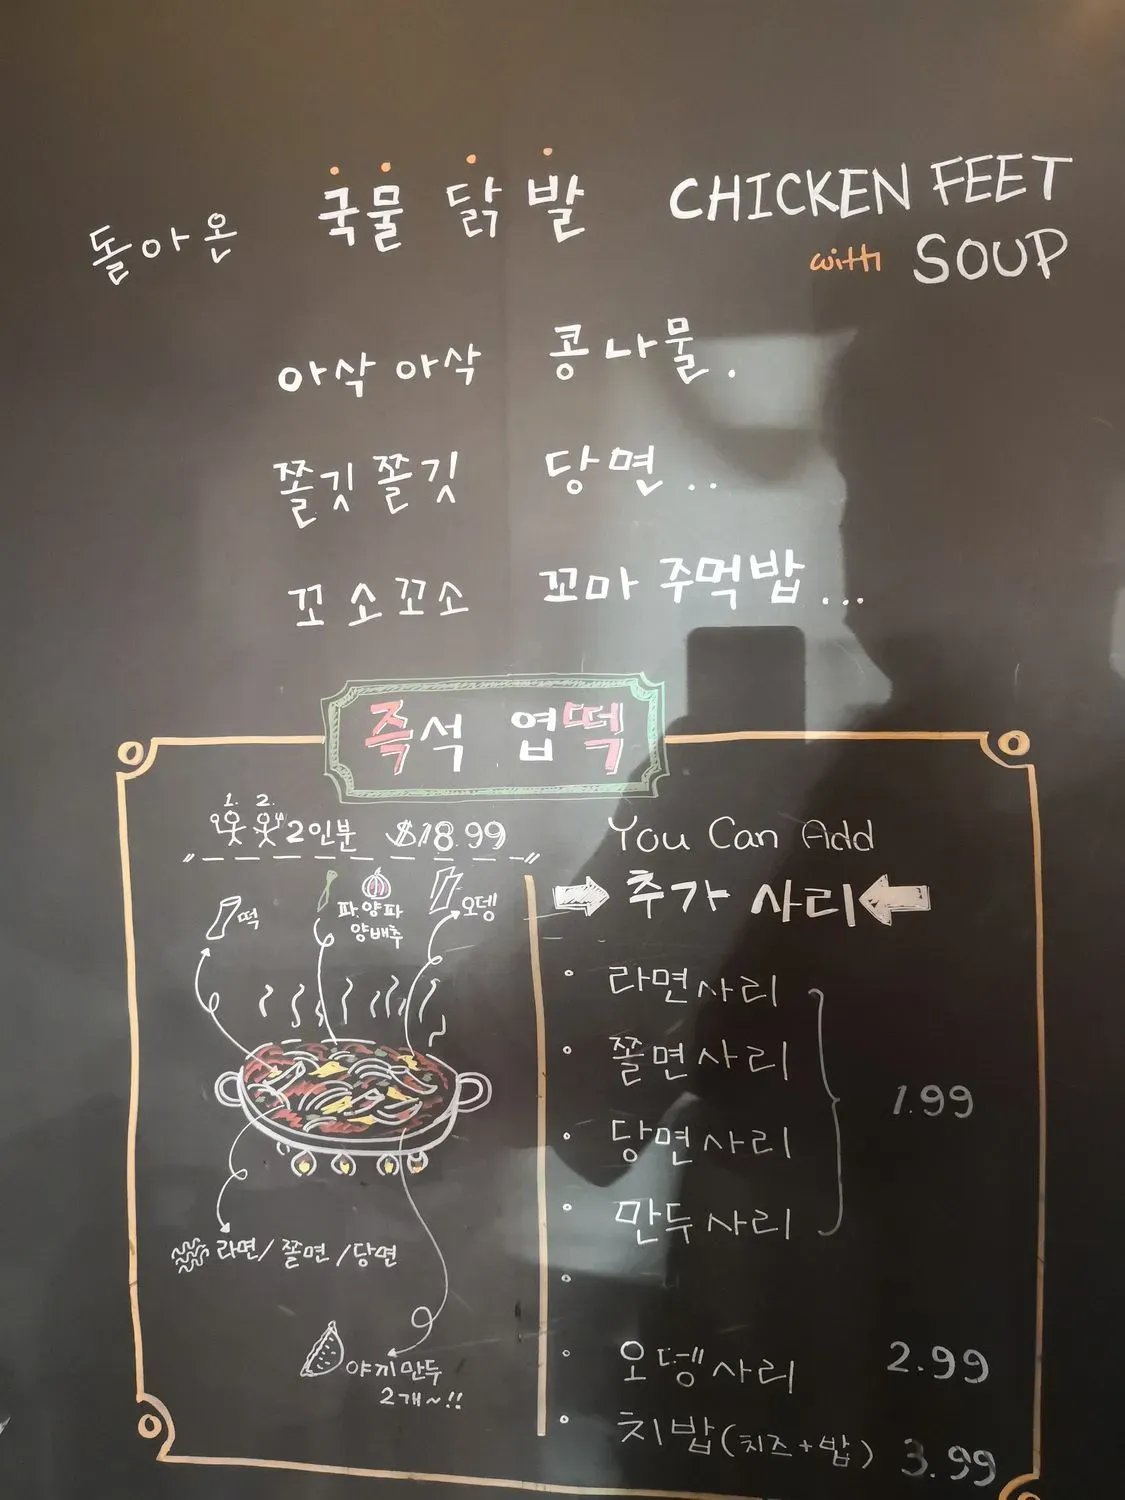 돌아온 국물 닭발 CHICKEN FEET
with SOUP
아삭아삭 콩나물.
쫄깃쫄깃 당면..
꼬소꼬소 꼬마 주먹밥...
즉석 엽떡
1. 2.
2인분 $18.99
떡
파.양파
양배추
오뎅
라면/쫄면/당면
야끼만두
2개~!!
You Can Add
추가 사리
• 라면사리
• 쫄면사리
• 당면사리
• 만두사리
1.99
•
• 오뎅사리 2.99
• 치밥(치즈+밥) 3.99